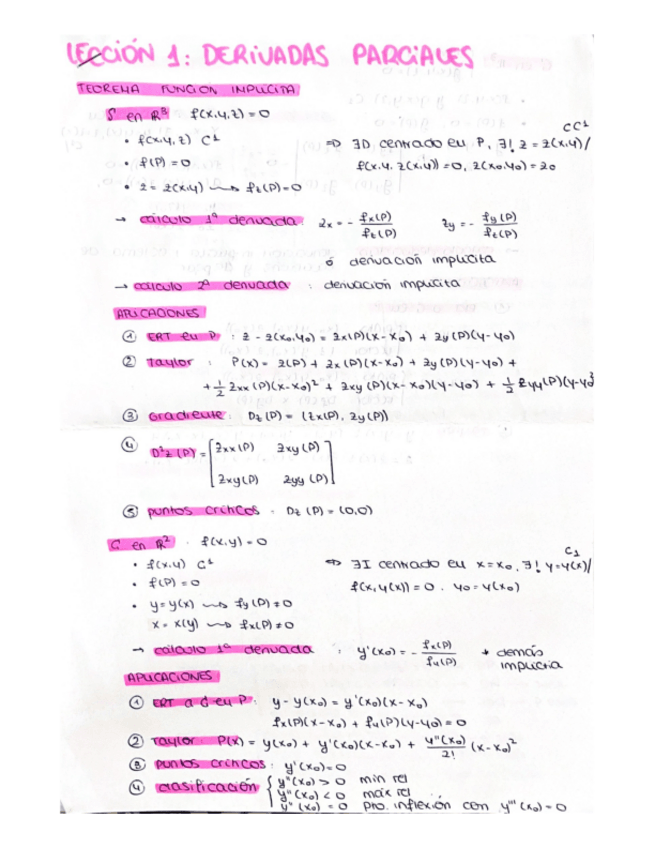 LECCIÓN 1: DERIVADAS PARCIALES
TEOREMA FUNCION IMPLÍCITA
S en R³ f(x,y,z)=0
• f(x,y,z) C¹ ⇒ ∃D centrado en P, ∃! z = z(x,y)/ CC¹
• f(P)=0 f(x,y,z(x,y))=0, z(x0,y0)=z0
• z = z(x,y) ⇝ fz(P)=0
→ cálculo 1ª derivada: zx = - fx(P)/fz(P) zy = - fy(P)/fz(P)
ó derivación implícita
→ cálculo 2ª derivada: derivación implícita
APLICACIONES
① ERT en P: z - z(x0,y0) = zx(P)(x-x0) + zy(P)(y-y0)
② Taylor: P(x) = z(P) + zx(P)(x-x0) + zy(P)(y-y0) +
+ 1/2 zxx(P)(x-x0)² + zxy(P)(x-x0)(y-y0) + 1/2 zyy(P)(y-y0)²
③ Gradiente: Dz(P) = (zx(P), zy(P))
④ D²z(P) = [zxx(P) zxy(P)
zxy(P) zyy(P)]
⑤ puntos críticos: Dz(P) = (0,0)
C en R². f(x,y)=0
• f(x,y) C¹ ⇒ ∃I centrado en x=x0, ∃! y=y(x)/ C1
• f(P)=0 f(x,y(x))=0. y0=y(x0)
• y=y(x) ⇝ fy(P)≠0
x=x(y) ⇝ fx(P)≠0
→ cálculo 1ª derivada: y'(x0) = - fx(P)/fy(P) + demás
implícita
APLICACIONES
① ERT a d en P: y-y(x0) = y'(x0)(x-x0)
fx(P)(x-x0) + fy(P)(y-y0)=0
② Taylor: P(x) = y(x0) + y'(x0)(x-x0) + y''(x0)/2! (x-x0)²
③ puntos críticos: y'(x0)=0
④ clasificación { y''(x0) > 0 min rel
y''(x0) < 0 máx rel
y''(x0) = 0 pto. inflexión con y'''(x0)=0